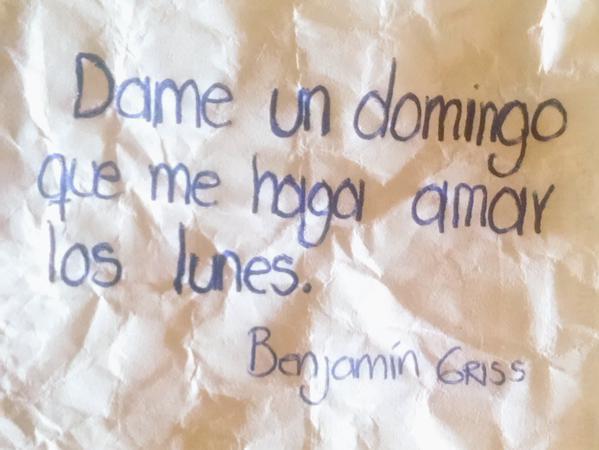 Dame un domingo
que me haga amar
los lunes.
Benjamín GRISS